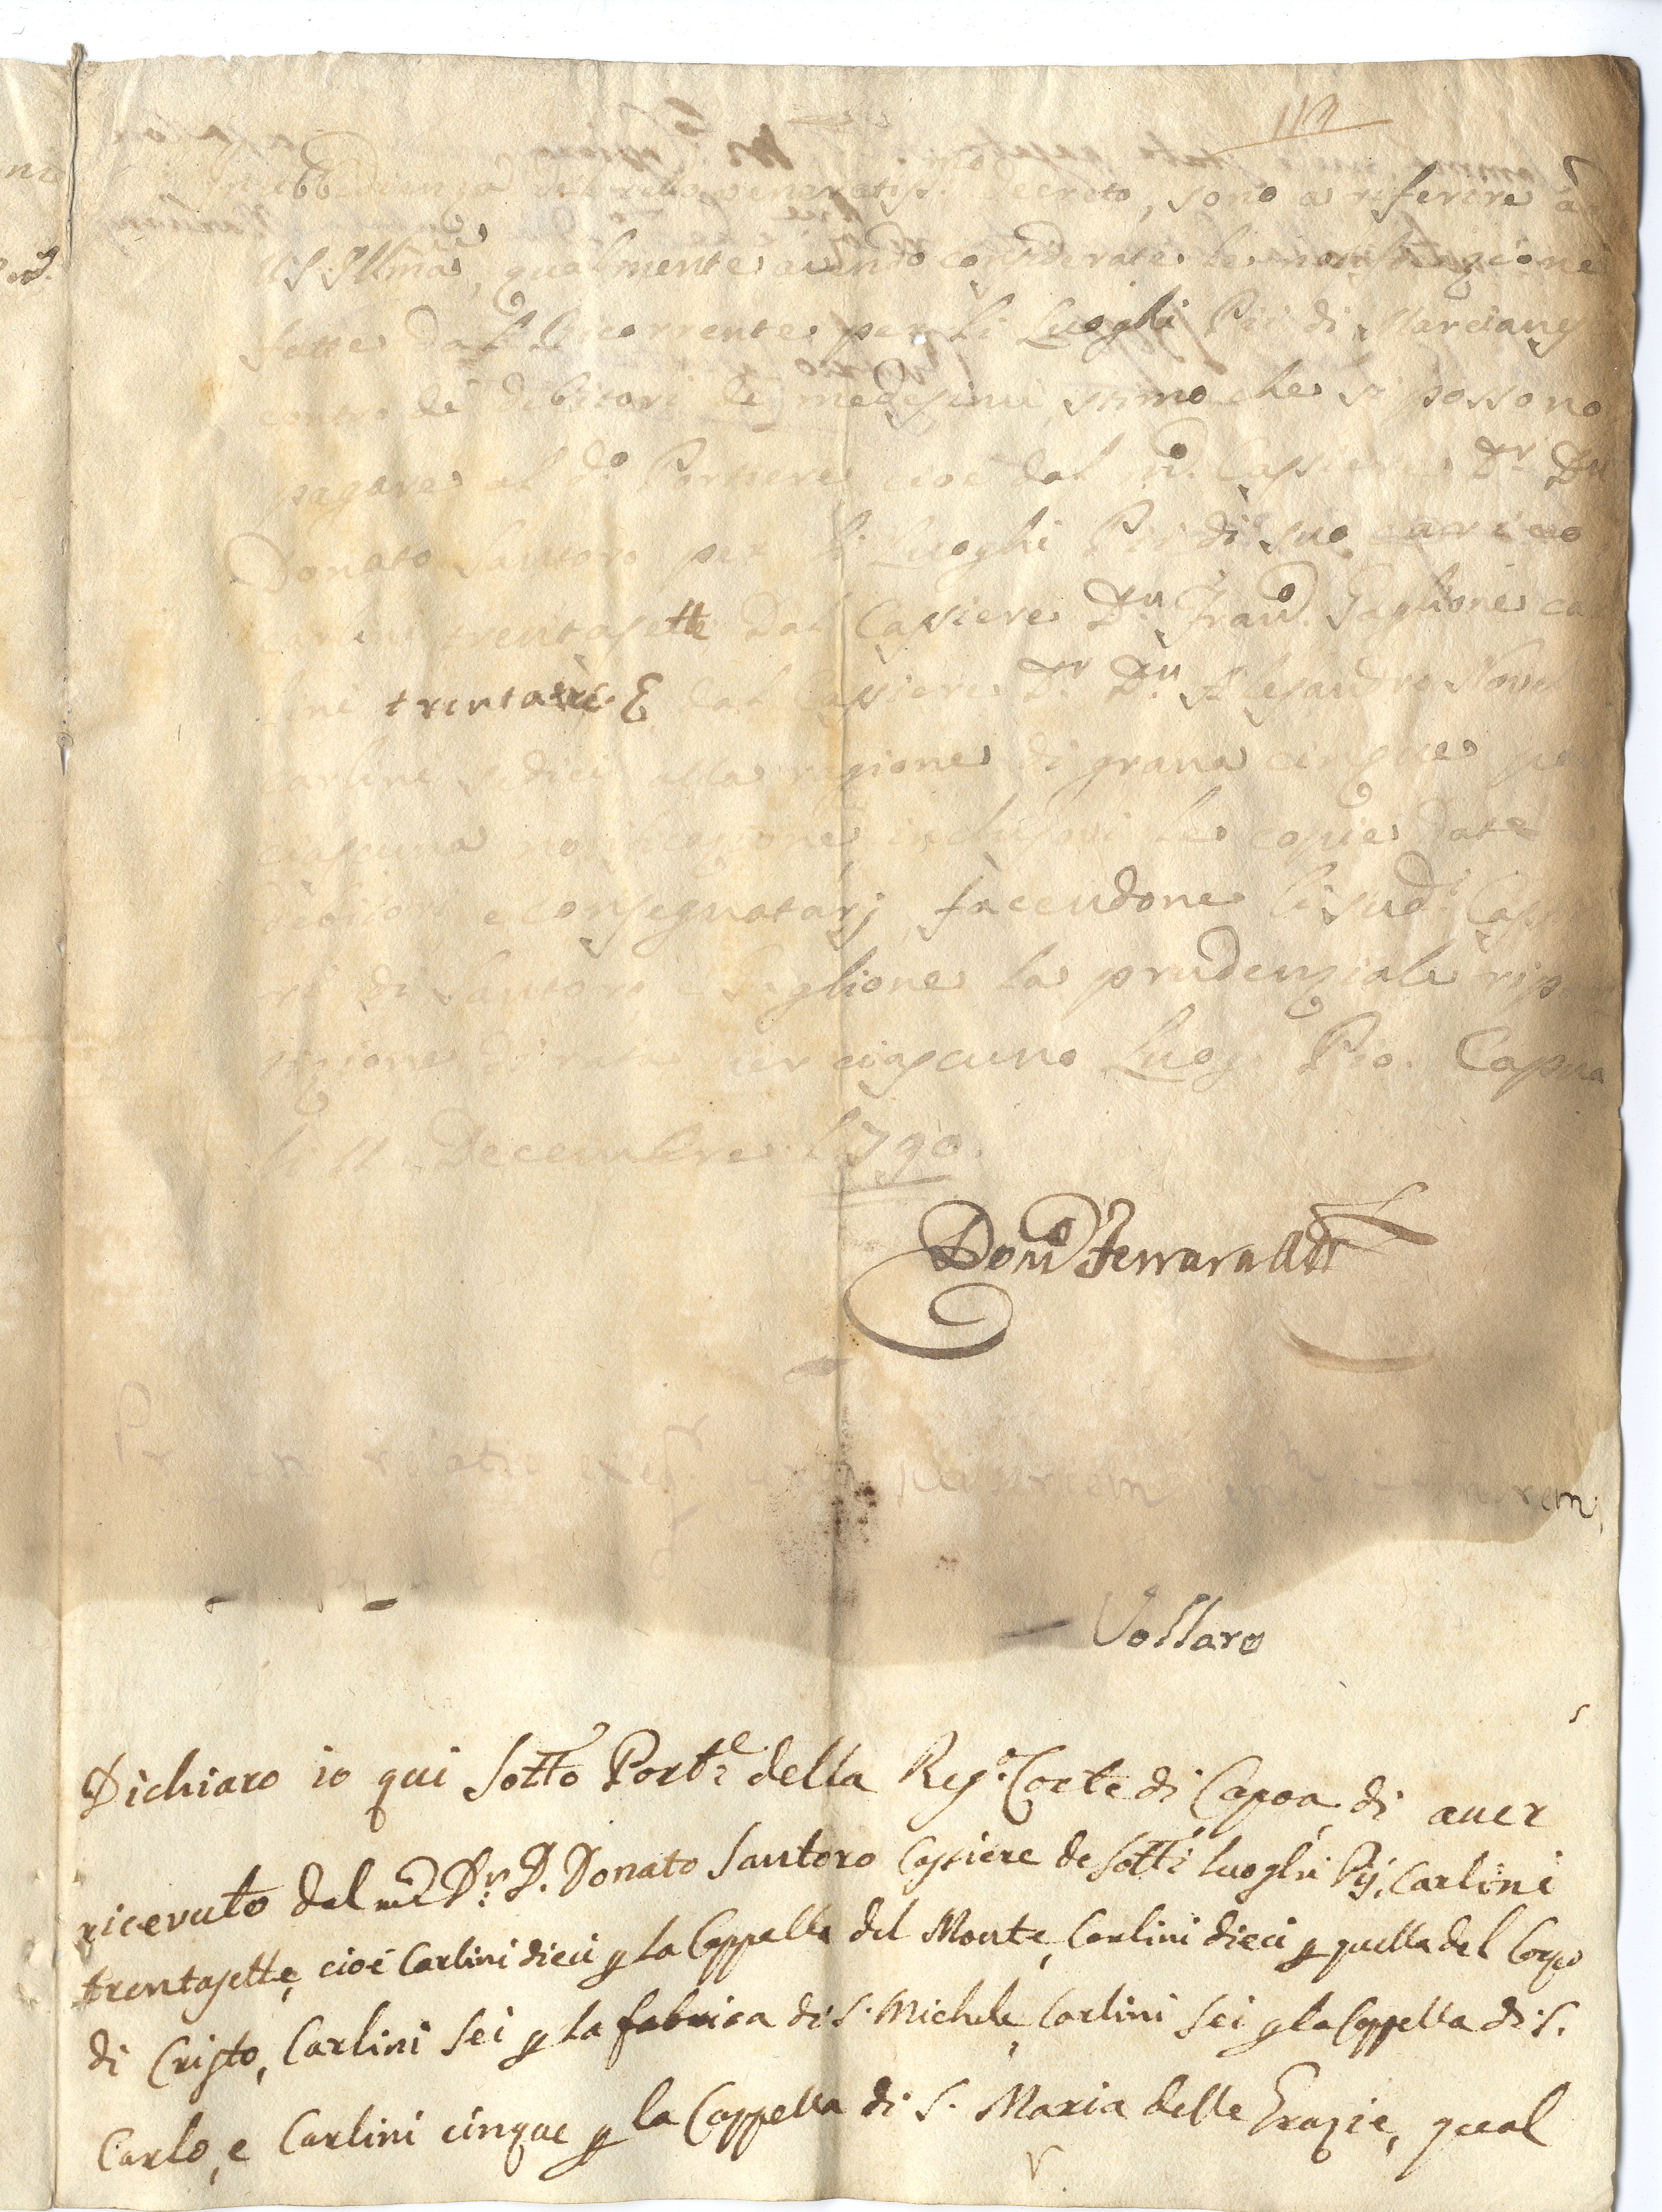 113
decreto, sono a riferire à
V. S. Illma, qualmente avendo considerate le notificazioni
fatte dal Ricorrente per li Luoghi Pii di Marcianisi
contro de' Debitori de' medesimi, stimo che si possono
pagare al do. Portiere cioè dal Cassiere Dr. Dn
Donato Santoro per li Luoghi Pii di suo carico
carlini trentasette dal Cassiere Dn Franco. Taglione car
lini trentatre E dal Cassiere Dr. Dn Alesandro Novel
carlini sedici alla ragione di grana cinque per
ciascuna notificazione inclusovi le copie date
debitori e consegnatarj, facendone li sudi Cassie
ri di Santoro e Taglione la prudenziale ripar
tizione di rata per ciascuno Luogo Pio. Capua
li 11 Decembre 1790.
Domco Ferrara
relatio exeq.
Vollaro
Dichiaro io qui sotto Porte della Rega. Corte di Capoa di aver
ricevuto dal mco Dr. D. Donato Santoro Cassiere de sotti Luoghi Pij, Carlini
trentasette, cioè Carlini dieci p la Cappella del Monte, Carlini dieci p quella del Corpo
di Cristo, Carlini sei p la fabrica di S. Michele, Carlini sei p la Cappella di S.
Carlo, e Carlini cinque p la Cappella di S. Maria delle Grazie, qual